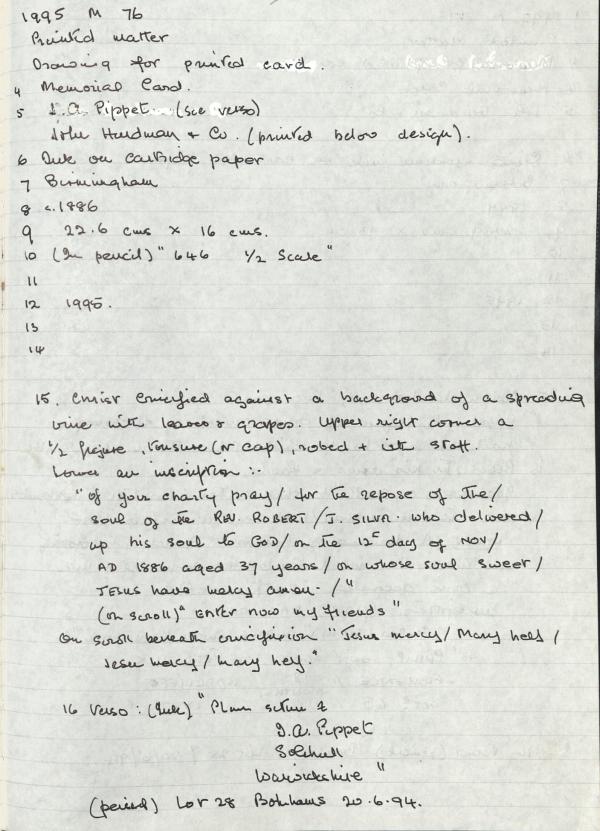 1995 M 76
Printed matter
Drawing for printed card.
4 Memorial Card.
5 J.A. Pippet (see verso)
John Hardman & Co. (printed below design).
6 Ink on cartridge paper
7 Birmingham
8 c.1886
9 22.6 cms x 16 cms.
10 (In pencil) "646 1/2 Scale"
11
12 1995.
13
14
15. Christ crucified against a background of a spreading
vine with leaves & grapes. Upper right corner a
1/2 figure, tonsure (or cap), robed + with staff.
Lower an inscription :-
"Of your charity pray/ for the repose of the/
soul of the REV. ROBERT/ J. SILVA. who delivered/
up his soul to GOD/ on the 12th day of NOV/
AD 1886 aged 37 years/ on whose soul sweet/
JESUS have mercy amen. /"
(on scroll) "Enter now my friends"
On scroll beneath crucifixion "Jesus mercy/ Mary help/
Jesu mercy/ Mary help."
16 Verso: (Ink) "Please return to
J.A. Pippet
Solihull
Warwickshire"
(pencil) Lot 28 Bonhams 20.6.94.